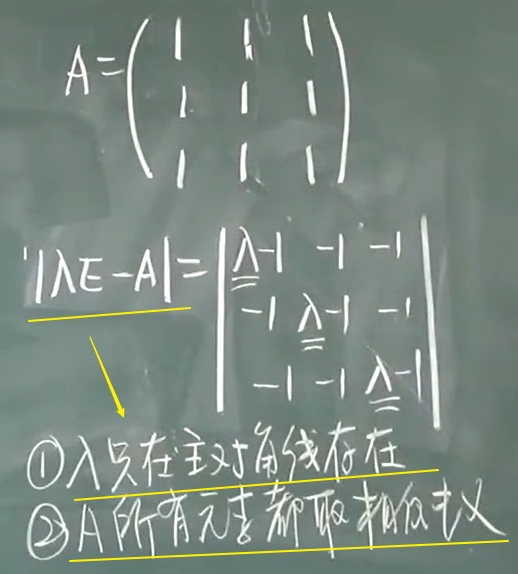 A=
1 1 1
1 1 1
1 1 1
|λE-A|=
λ-1 -1 -1
-1 λ-1 -1
-1 -1 λ-1
①λ只在主对角线存在
②A所有元素都取相反